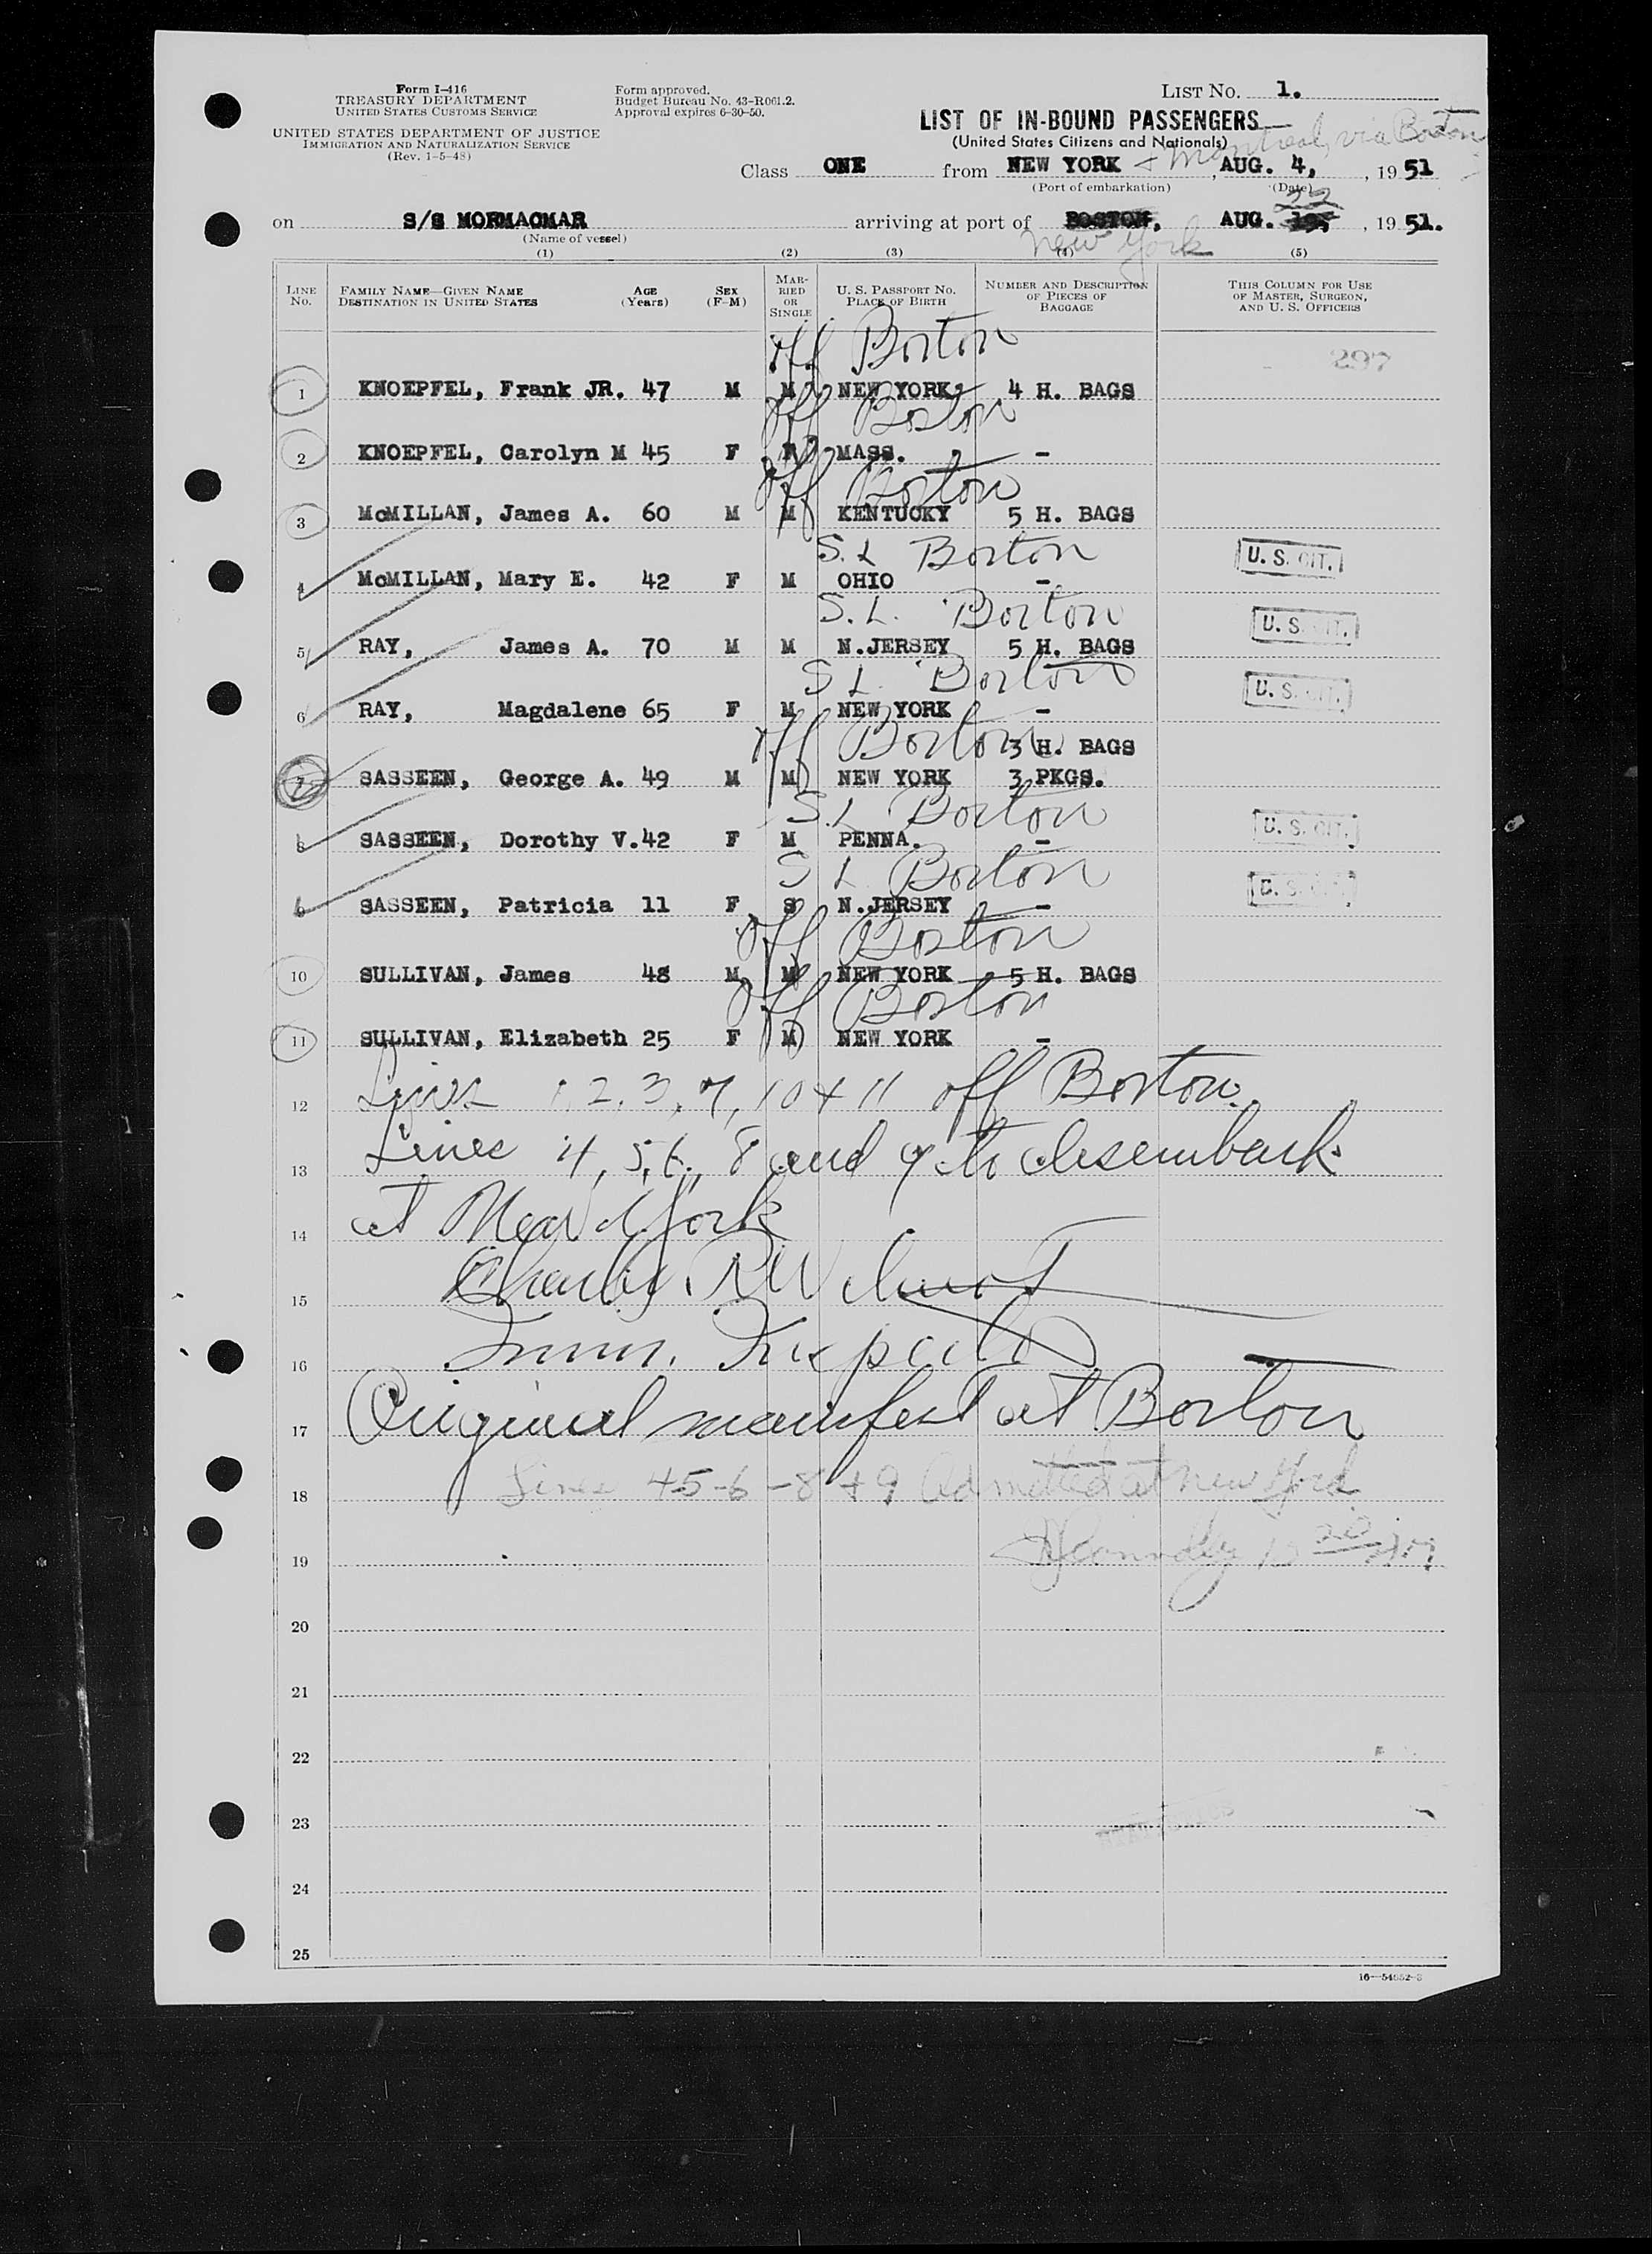 Form I-416
TREASURY DEPARTMENT
UNITED STATES CUSTOMS SERVICE
UNITED STATES DEPARTMENT OF JUSTICE
IMMIGRATION AND NATURALIZATION SERVICE
(Rev. 1-5-48)
Form approved.
Budget Bureau No. 43-R061.2.
Approval expires 6-30-50.
LIST NO. 1.
LIST OF IN-BOUND PASSENGERS
(United States Citizens and Nationals)
Class ONE from NEW YORK + Montreal, via Boston, AUG. 4, 1951
(Port of embarkation) (Date)
on S/S MORMACMAR arriving at port of BOSTON, New York AUG. 19, 22, 1951.
(Name of vessel)
(1) (2) (3) (4) (5)
LINE NO. FAMILY NAME—GIVEN NAME DESTINATION IN UNITED STATES AGE (Years) SEX (F-M) MARRIED OR SINGLE U. S. PASSPORT NO. PLACE OF BIRTH NUMBER AND DESCRIPTION OF PIECES OF BAGGAGE THIS COLUMN FOR USE OF MASTER, SURGEON, AND U. S. OFFICERS
off Boston 297
1 KNOEPFEL, Frank JR. 47 M M NEW YORK 4 H. BAGS
off Boston
2 KNOEPFEL, Carolyn M 45 F MASS. -
off Boston
3 McMILLAN, James A. 60 M M KENTUCKY 5 H. BAGS
S.L Boston U. S. CIT.
4 McMILLAN, Mary E. 42 F M OHIO -
S.L. Boston U. S. CIT.
5 RAY, James A. 70 M M N.JERSEY 5 H. BAGS
S L. Boston U. S. CIT.
6 RAY, Magdalene 65 F M NEW YORK -
off Boston 3 H. BAGS
7 SASSEEN, George A. 49 M M NEW YORK 3 PKGS.
S.L Boston U. S. CIT.
8 SASSEEN, Dorothy V. 42 F M PENNA. -
S L Boston U. S. CIT.
9 SASSEEN, Patricia 11 F S N.JERSEY -
off Boston
10 SULLIVAN, James 48 M M NEW YORK 5 H. BAGS
off Boston
11 SULLIVAN, Elizabeth 25 F M NEW YORK -
12 Lines 1, 2, 3, 7, 10 + 11 off Boston.
13 Lines 4, 5, 6, 8 and 9 to disembark
14 at New York
15 Charles R
16 Imm. Inspector
17 Original manifest at Boston
18 Lines 4-5-6-8+9 Admitted at New York
19
20
21
22
23
24
25
16—54652-3